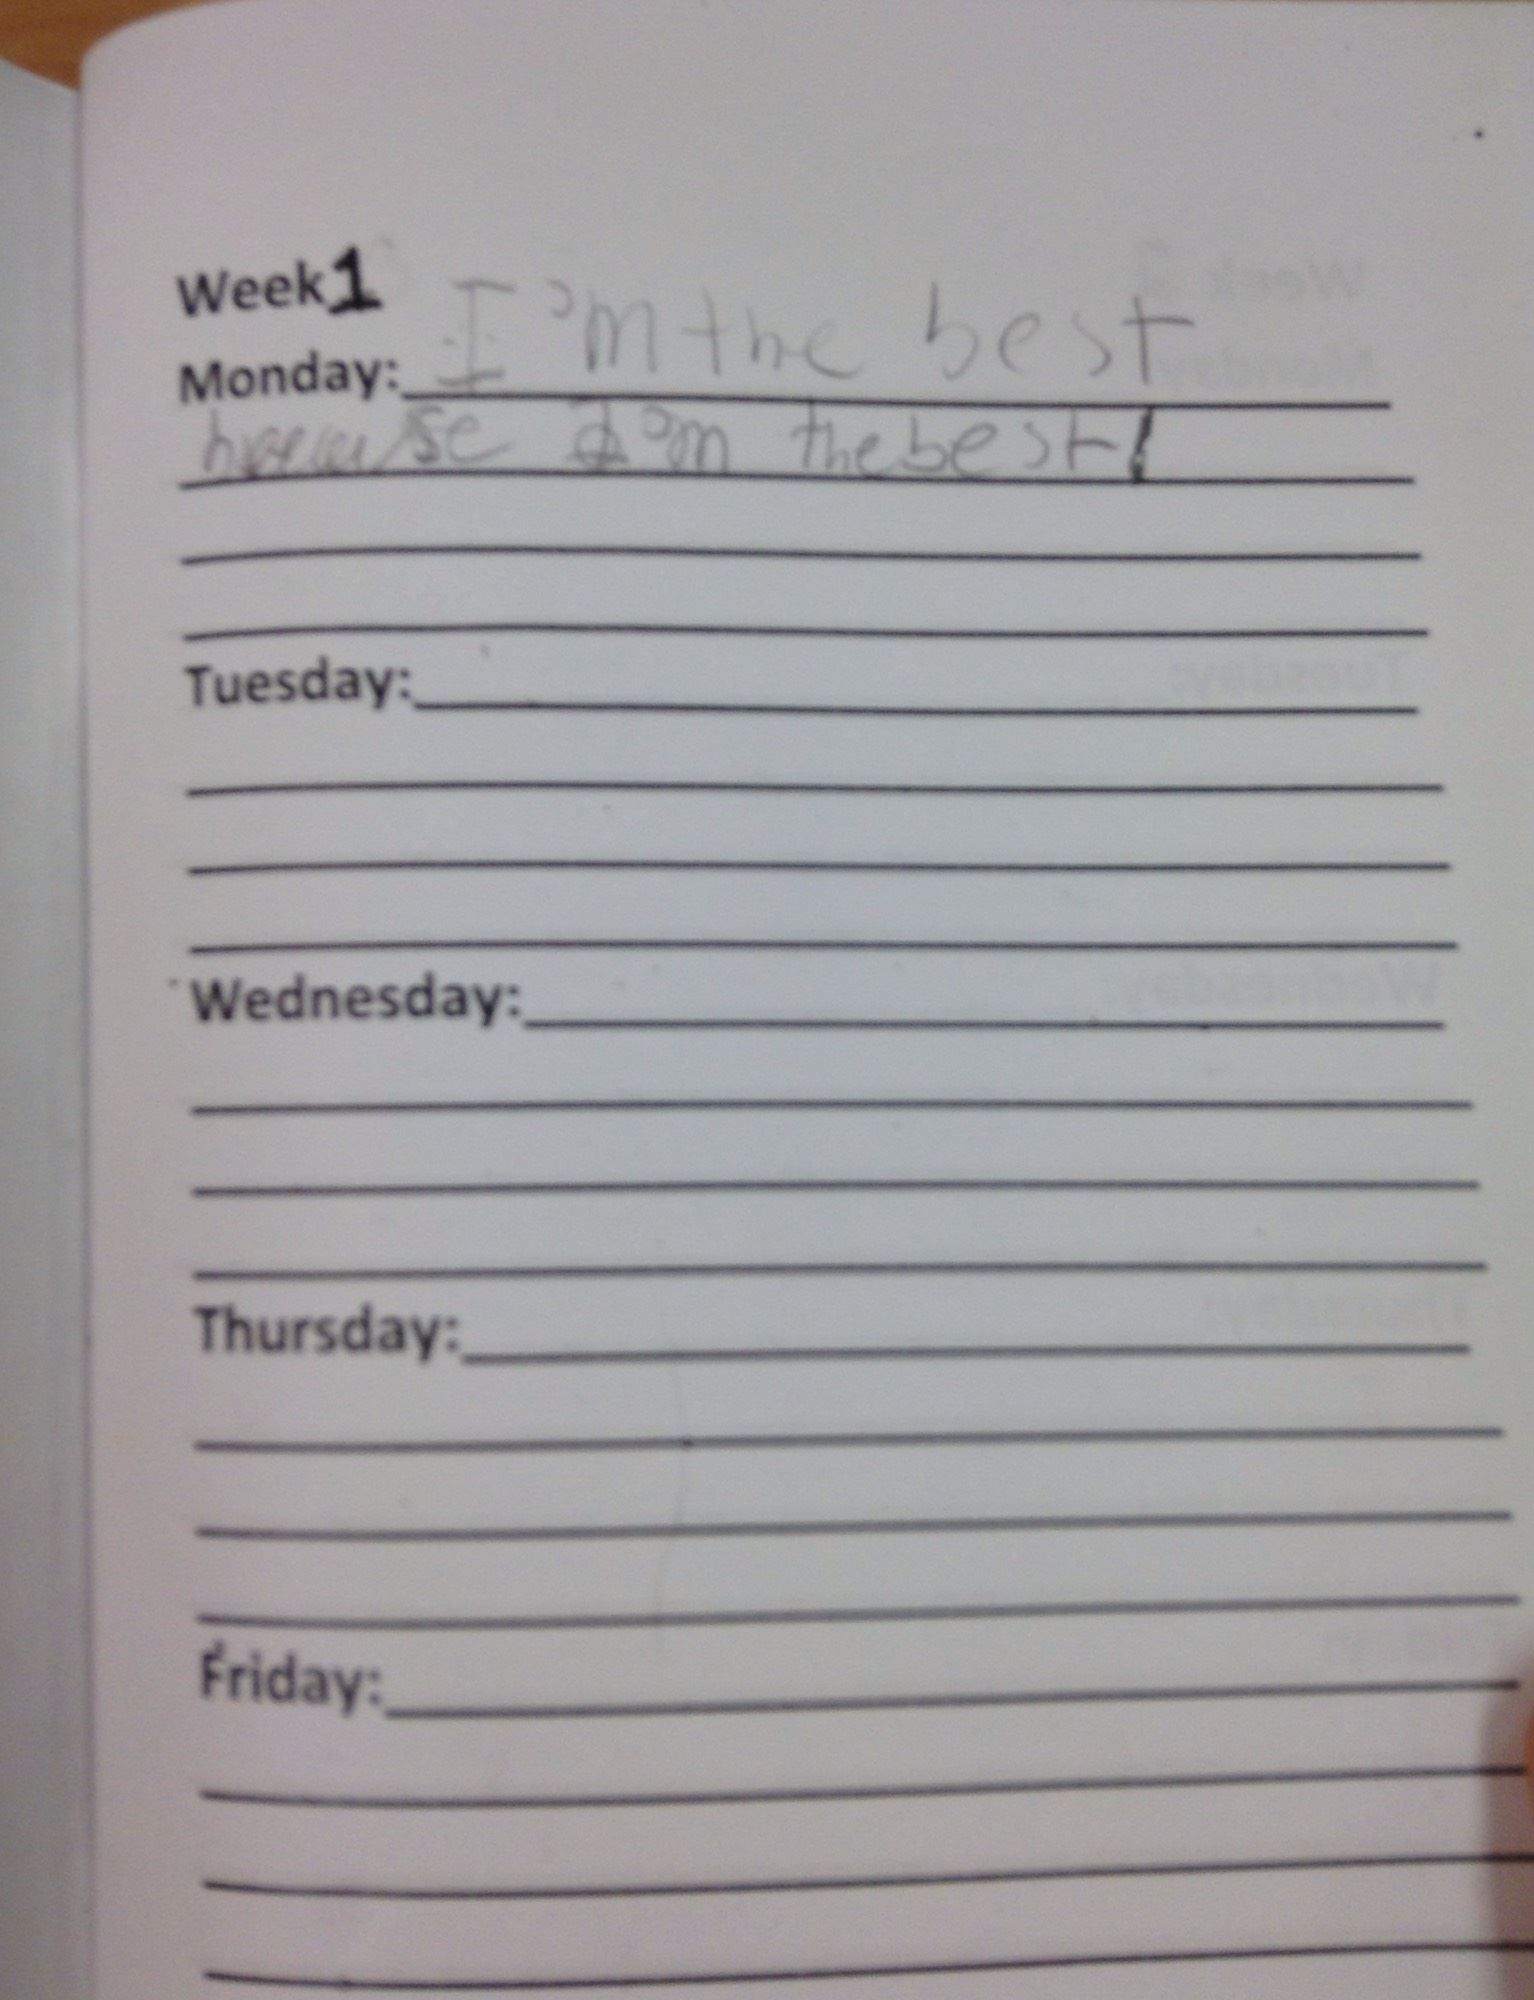 Week 1
Monday: I'm the best
because I'm the best!
Tuesday:
Wednesday:
Thursday:
Friday: